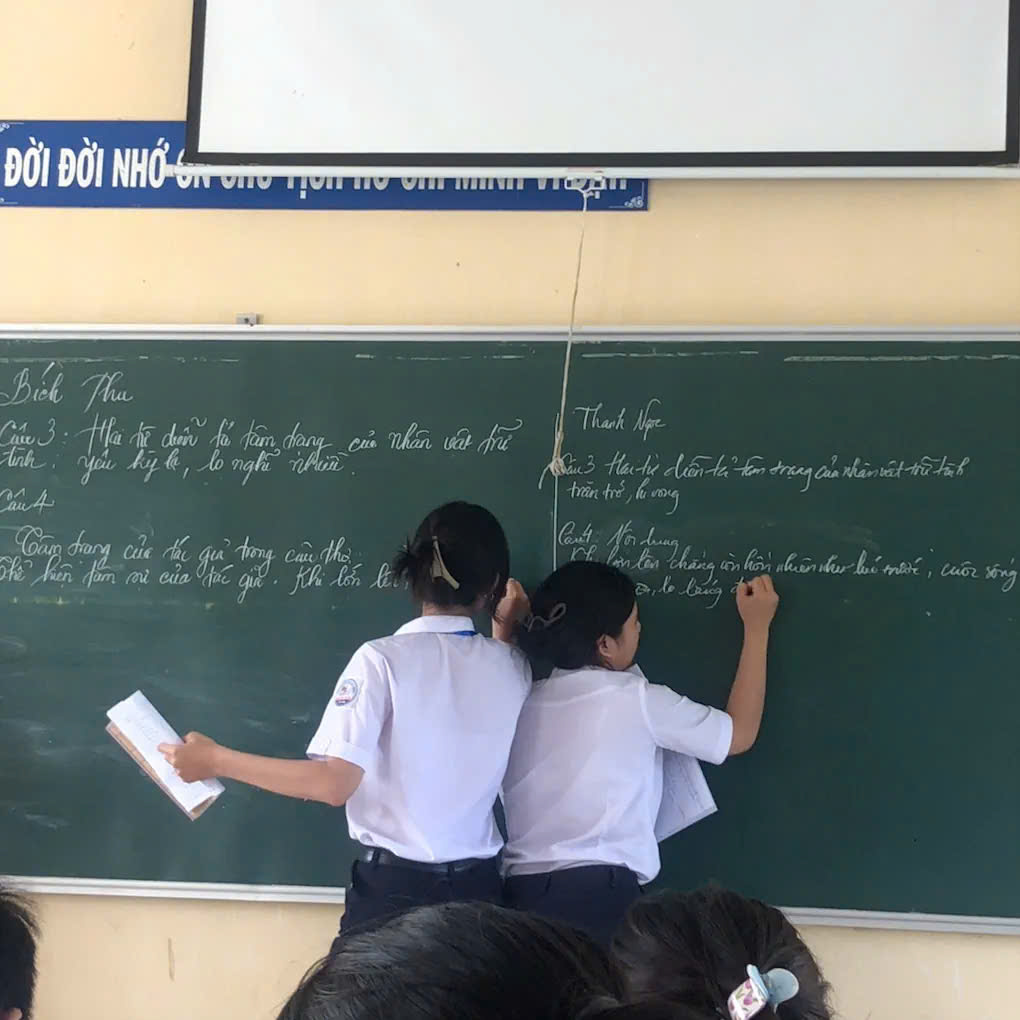 ĐỜI ĐỜI NHỚ ƠN CHỦ TỊCH HỒ CHÍ MINH VĨ ĐẠI
Bích Thu
Câu 3: Hai từ diễn tả tâm trạng của nhân vật trữ
tình: yêu kỳ lạ, lo nghĩ nhiều.
Câu 4
Tâm trạng của tác giả trong câu thơ:
Thể hiện tâm sự của tác giả. Khi lớn
Thanh Ngọc
Câu 3 Hai từ diễn tả tâm trạng của nhân vật trữ tình
trăn trở, hi vọng
Câu 4: Nội dung
lớn lên chẳng còn hồn nhiên như lúc trước, cuộc sống
lo lắng